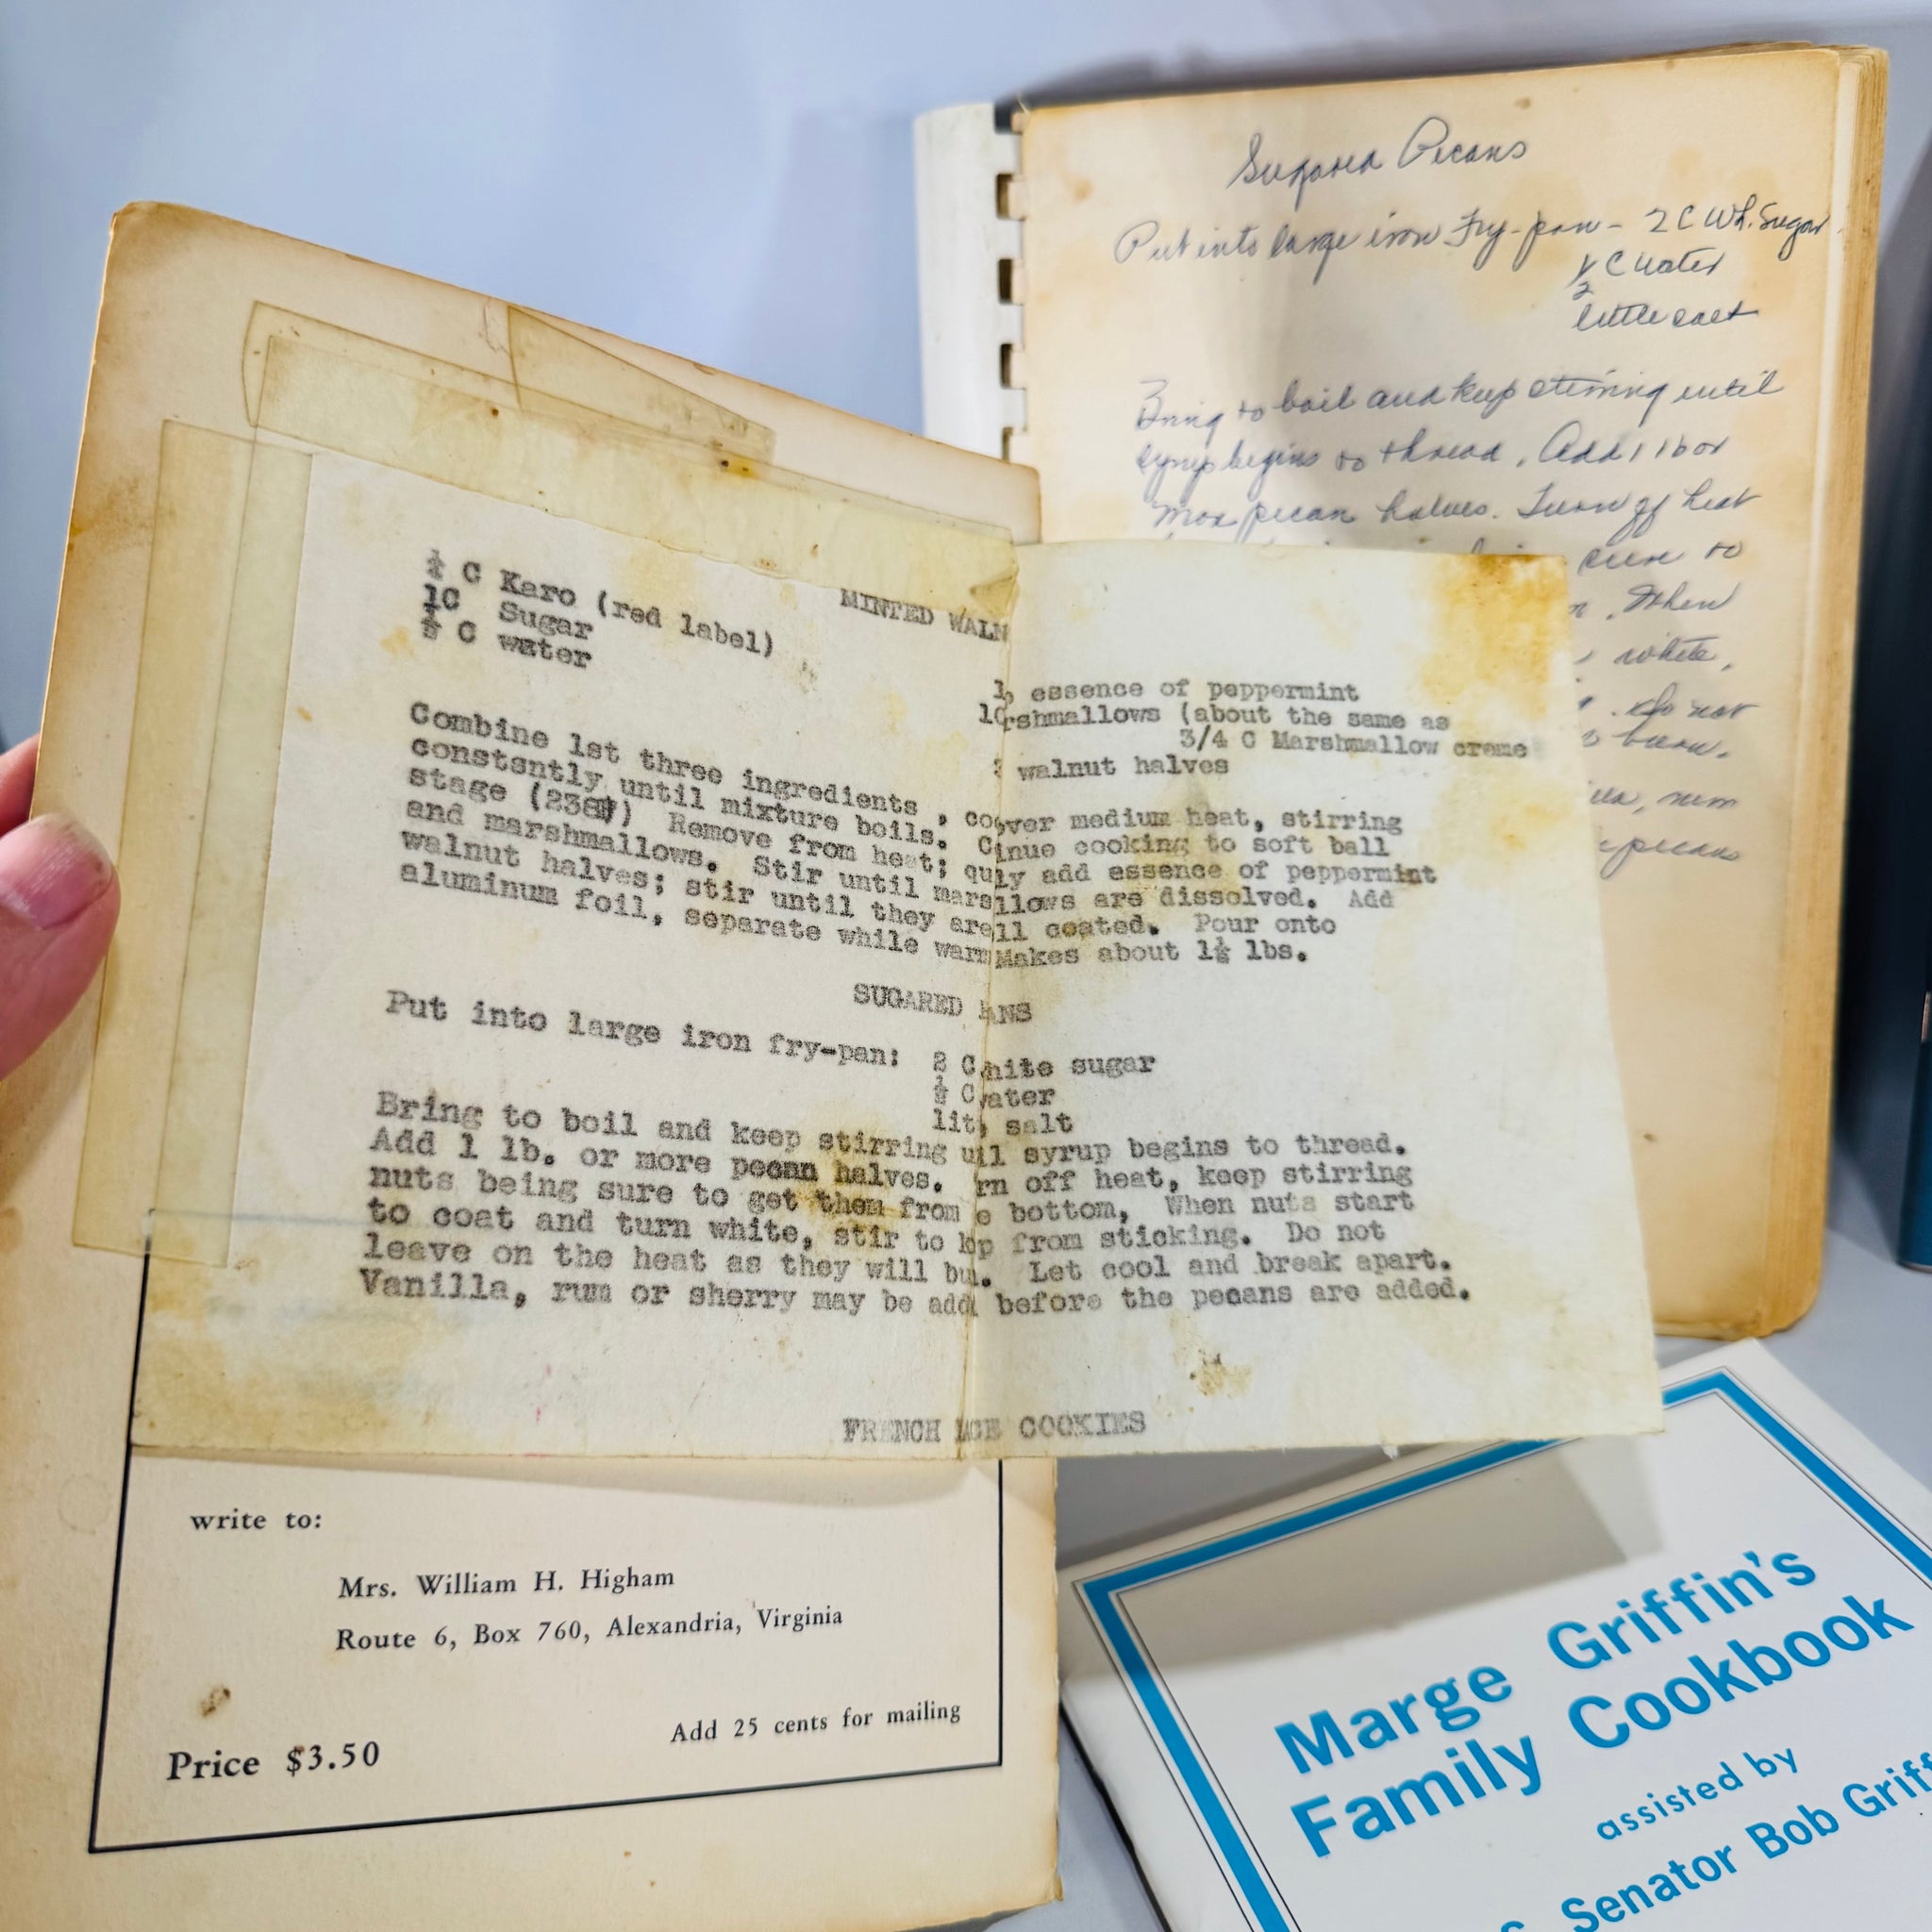 Sugared Pecans
Put into large iron Fry-pan - 2 C Wh. Sugar
1/2 C water
little salt
Bring to boil and keep stirring until
syrup begins to thread. Add 1 lb or
more pecan halves. Turn off heat
sure to
When
white,
. Do not
burn.
rum
pecans
C Karo (red label)
1C Sugar
C water
MINTED WALN
essence of peppermint
rshmallows (about the same as
3/4 C Marshmallow creme
walnut halves
Combine 1st three ingredients , co ver medium heat, stirring
constantly until mixture boils. C inue cooking to soft ball
stage (238) Remove from heat; qu ly add essence of peppermint
and marshmallows. Stir until mars llows are dissolved. Add
walnut halves; stir until they are ll coated. Pour onto
aluminum foil, separate while warm Makes about 1½ lbs.
SUGARED ANS
Put into large iron fry-pan: 2 C hite sugar
½ C ater
lit salt
Bring to boil and keep stirring u il syrup begins to thread.
Add 1 lb. or more pecan halves. rn off heat, keep stirring
nuts being sure to get them from e bottom, When nuts start
to coat and turn white, stir to k p from sticking. Do not
leave on the heat as they will bu . Let cool and break apart.
Vanilla, rum or sherry may be add before the pecans are added.
FRENCH ACE COOKIES
write to:
Mrs. William H. Higham
Route 6, Box 760, Alexandria, Virginia
Add 25 cents for mailing
Price $3.50
Marge Griffin's
Family Cookbook
assisted by
Senator Bob Griff